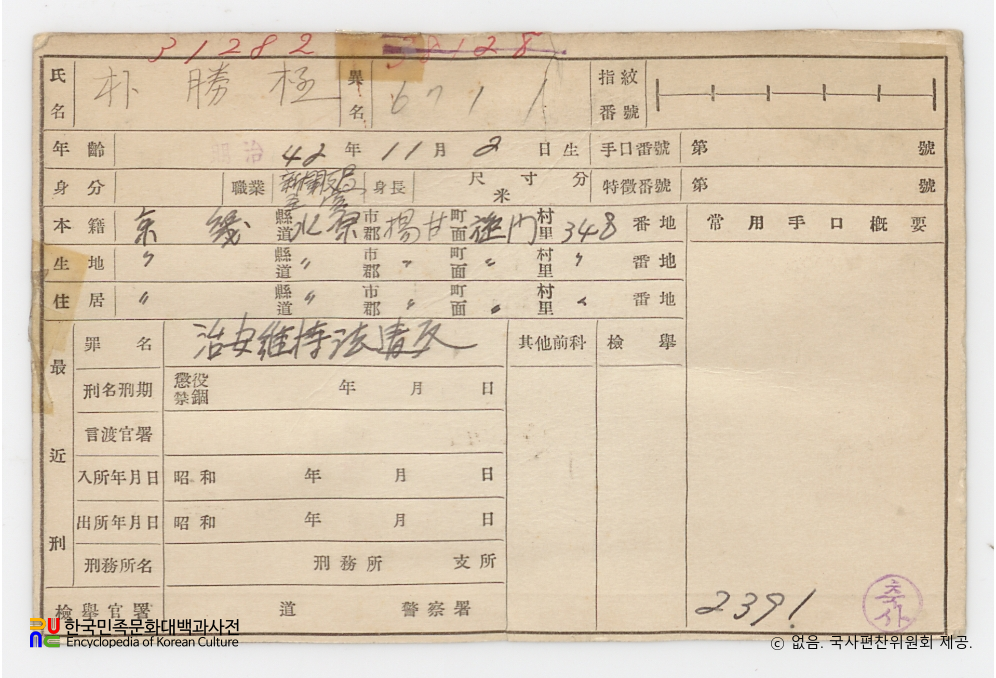 31282 38128
氏名 朴勝極 異名 671 指紋番號
年齡 明治 42年 11月 2日生 手口番號 第 號
身分 職業 新聞支局 身長 尺 寸 分 米 特徵番號 第 號
本籍 京畿 縣道 水原 市郡 揚甘 町面 村里 348 番地 常用手口槪要
生地 〃 縣道 〃 市郡 〃 町面 〃 村里 〃 番地
住居 〃 縣道 〃 市郡 〃 町面 〃 村里 〃 番地
最近刑
罪名 治安維持法違反 其他前科 檢擧
刑名刑期 懲役 禁錮 年 月 日
言渡官署
入所年月日 昭和 年 月 日
出所年月日 昭和 年 月 日
刑務所名 刑務所 支所
檢擧官署 道 警察署
2391
축사
한국민족문화대백과사전
Encyclopedia of Korean Culture
ⓒ 없음. 국사편찬위원회 제공.